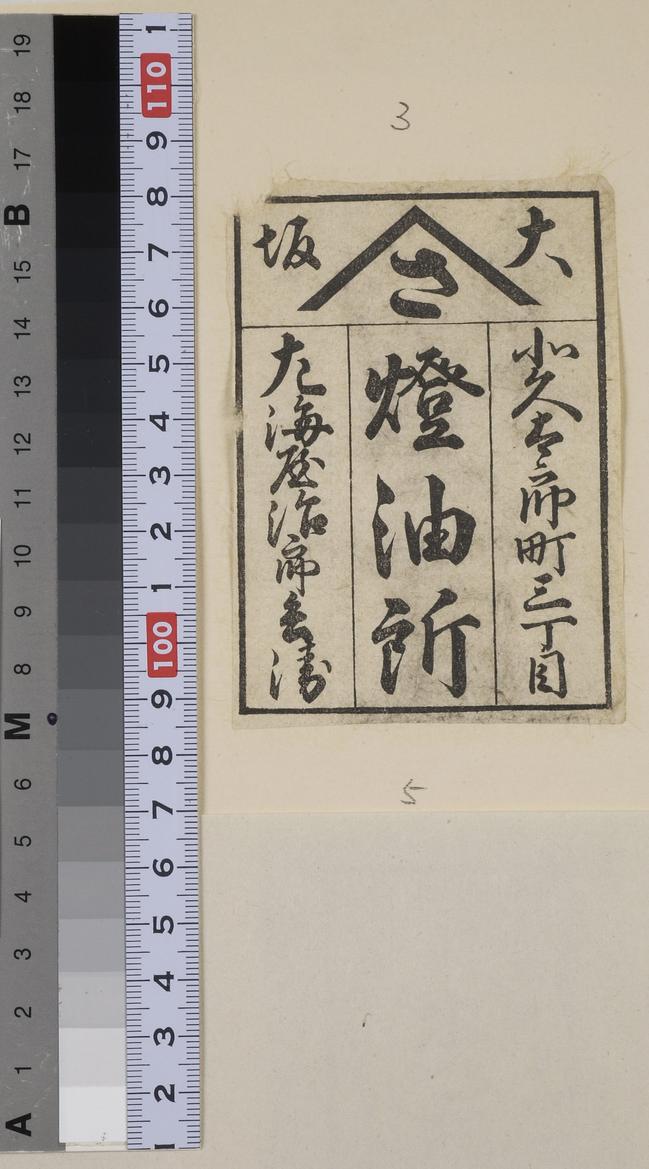 3
大
さ
坂
北久太郎町三丁目
燈油所
左海屋治郎兵衛
5
19 18 17 B 15 14 13 12 11 10 9 8 M 6 5 4 3 2 1 A
1 110 9 8 7 6 5 4 3 2 1 100 9 8 7 6 5 4 3 2 1